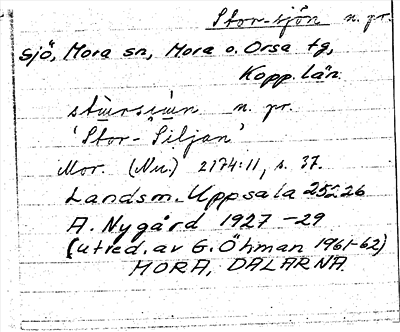 Stor-sjön n. pr.
sjö, Mora sn, Mora o. Orsa tg,
Kopp. län.
n. pr.
'Stor-Siljan'
Mor. (Nu.) 2174:11, s. 37.
Landsm. Uppsala 25226
A. Nygård 1927-29
(utred. av G. Öhman 1961-62)
MORA, DALARNA.